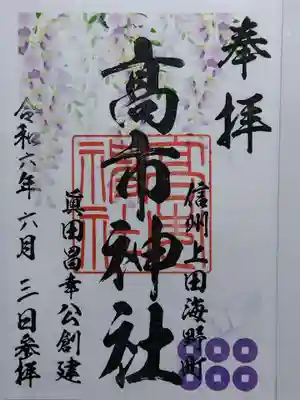 奉拝
信州上田海野町
髙市神社
眞田昌幸公創建
令和六年六月三日参拝